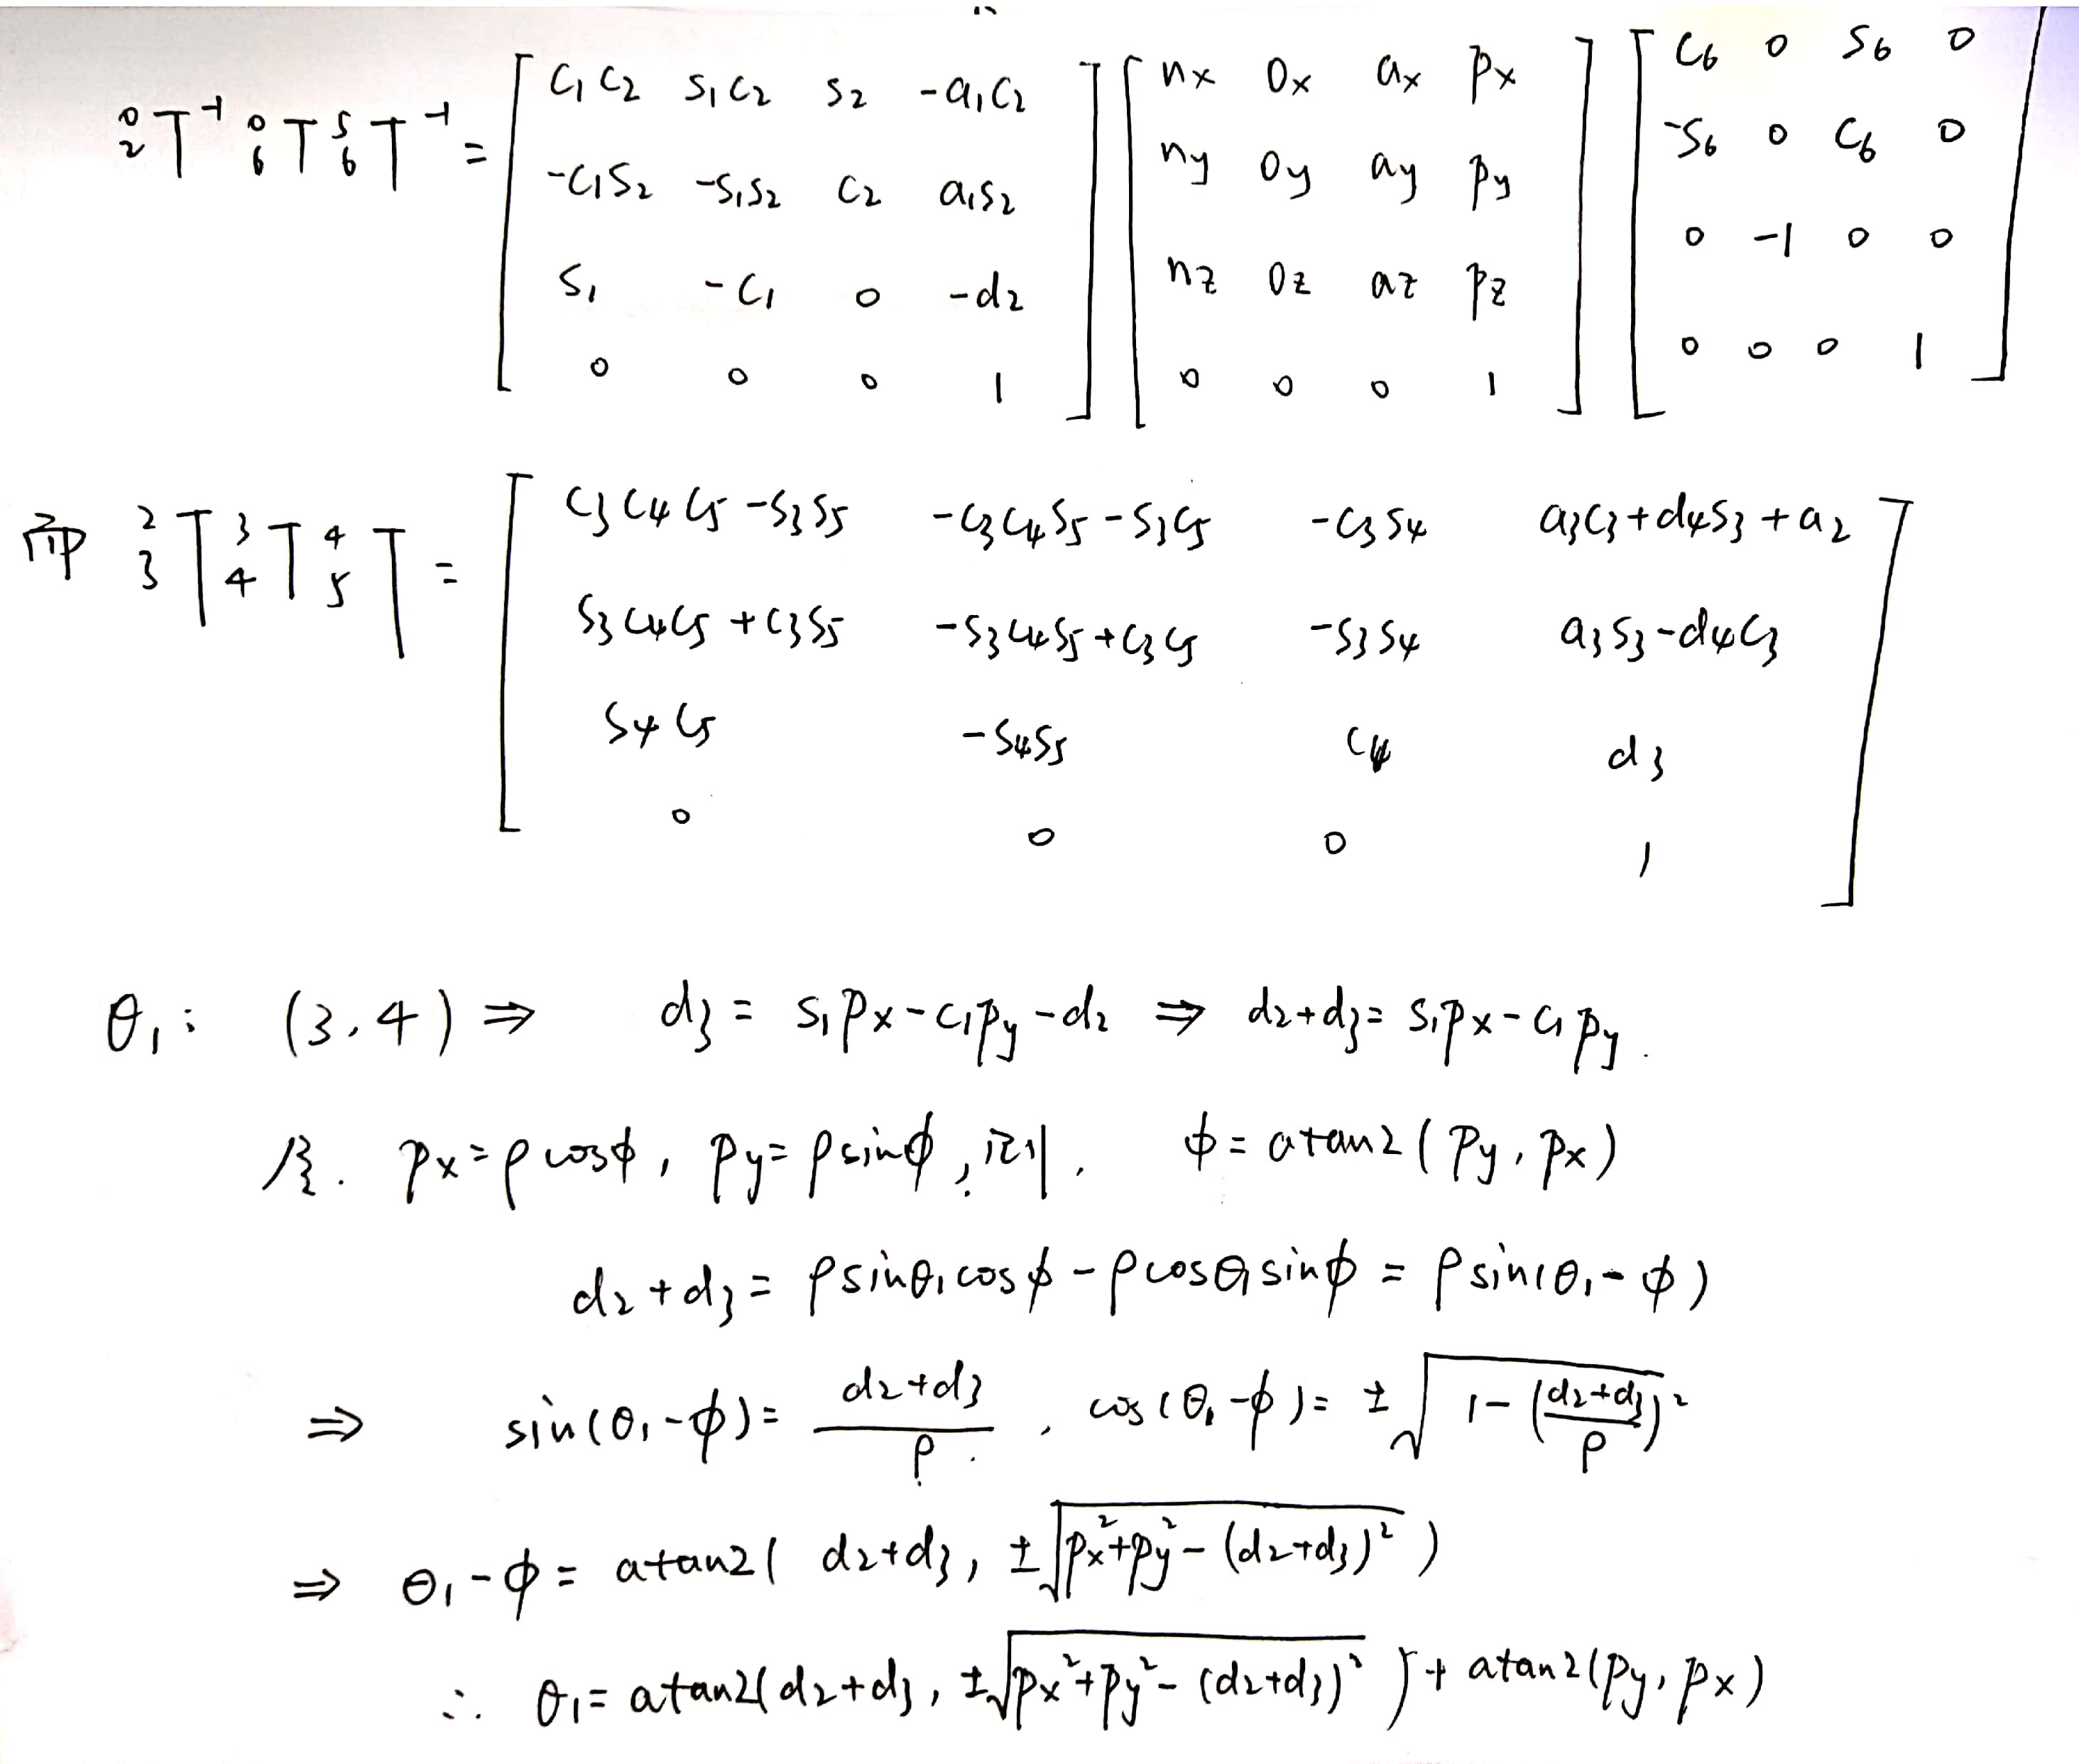 ${}^0_2T^{-1}\,{}^0_6T\,{}^5_6T^{-1} = \begin{bmatrix} c_1c_2 & s_1c_2 & s_2 & -a_1c_2 \\ -c_1s_2 & -s_1s_2 & c_2 & a_1s_2 \\ s_1 & -c_1 & 0 & -d_2 \\ 0 & 0 & 0 & 1 \end{bmatrix} \begin{bmatrix} n_x & o_x & a_x & p_x \\ n_y & o_y & a_y & p_y \\ n_z & o_z & a_z & p_z \\ 0 & 0 & 0 & 1 \end{bmatrix} \begin{bmatrix} c_6 & 0 & s_6 & 0 \\ -s_6 & 0 & c_6 & 0 \\ 0 & -1 & 0 & 0 \\ 0 & 0 & 0 & 1 \end{bmatrix}$
而 ${}^2_3T\,{}^3_4T\,{}^4_5T = \begin{bmatrix} c_3c_4c_5-s_3s_5 & -c_3c_4s_5-s_3c_5 & -c_3s_4 & a_3c_3+d_4s_3+a_2 \\ s_3c_4c_5+c_3s_5 & -s_3c_4s_5+c_3c_5 & -s_3s_4 & a_3s_3-d_4c_3 \\ s_4c_5 & -s_4s_5 & c_4 & d_3 \\ 0 & 0 & 0 & 1 \end{bmatrix}$
$\theta_1$: (3,4) ⇒ $d_3 = s_1p_x - c_1p_y - d_2$ ⇒ $d_2+d_3 = s_1p_x - c_1p_y$.
$p_x = \rho\cos\phi$, $p_y = \rho\sin\phi$, 则. $\phi = atan2(p_y, p_x)$
$d_2+d_3 = \rho\sin\theta_1\cos\phi - \rho\cos\theta_1\sin\phi = \rho\sin(\theta_1-\phi)$
⇒ $\sin(\theta_1-\phi) = \frac{d_2+d_3}{\rho}$, $\cos(\theta_1-\phi) = \pm\sqrt{1-(\frac{d_2+d_3}{\rho})^2}$
⇒ $\theta_1-\phi = atan2(d_2+d_3, \pm\sqrt{p_x^2+p_y^2-(d_2+d_3)^2})$
∴ $\theta_1 = atan2(d_2+d_3, \pm\sqrt{p_x^2+p_y^2-(d_2+d_3)^2}) + atan2(p_y, p_x)$